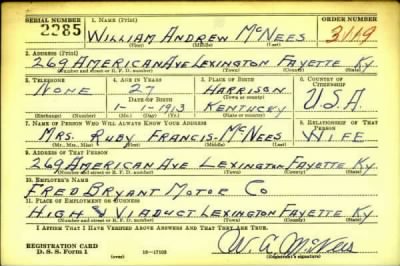 SERIAL NUMBER 1. NAME (Print) ORDER NUMBER
2285 WILLIAM ANDREW McNEES 3119
(First) (Middle) (Last)
2. ADDRESS (Print)
269 AMERICAN AVE LEXINGTON FAYETTE KY.
(Number and street or R. F. D. number) (Town) (County) (State)
3. TELEPHONE 4. AGE IN YEARS 5. PLACE OF BIRTH 6. COUNTRY OF CITIZENSHIP
NONE 27 HARRISON U.S.A.
DATE OF BIRTH (Town or county)
1-1-1913 KENTUCKY
7. NAME OF PERSON WHO WILL ALWAYS KNOW YOUR ADDRESS 8. RELATIONSHIP OF THAT PERSON
MRS. RUBY FRANCIS McNEES WIFE
(Mr., Mrs., Miss) (First) (Middle) (Last)
9. ADDRESS OF THAT PERSON
269 AMERICAN AVE LEXINGTON FAYETTE KY.
(Number and street or R. F. D. number) (Town) (County) (State)
10. EMPLOYER'S NAME
FRED BRYANT MOTOR CO
11. PLACE OF EMPLOYMENT OR BUSINESS
HIGH & VIADUCT LEXINGTON FAYETTE KY.
(Number and street or R. F. D. number) (Town) (County) (State)
I AFFIRM THAT I HAVE VERIFIED ABOVE ANSWERS AND THAT THEY ARE TRUE.
REGISTRATION CARD
D. S. S. Form 1 16—17105 W. A. McNees
(Registrant's signature)